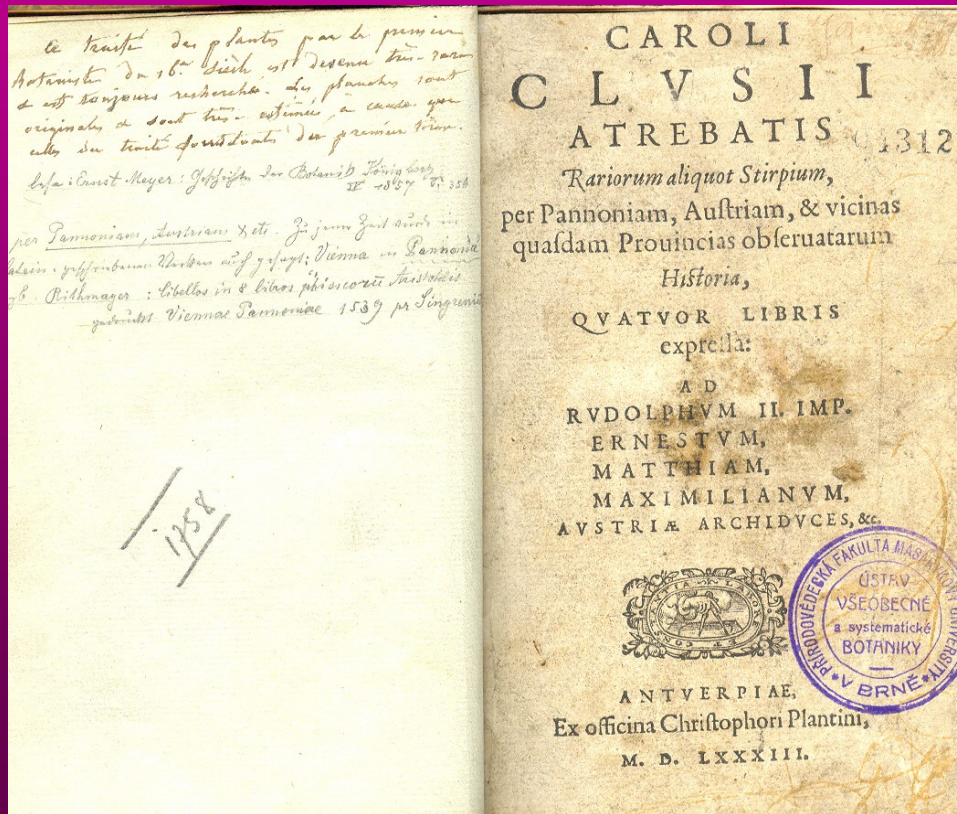 Ce traité des plantes par le premier
Botaniste du 16e siècle, est devenu très-rare
& est toujours recherché. Les planches sont
originales & sont très-estimées, à cause que
celles du traité du premier
Ernst Meyer: Geschichte der Botanik Königsberg
IV 1857 S. 350
per Pannoniam, Austriam & etc. Zu jener Zeit wurde in
Latein. geschriebenen Werken auch gesagt: Vienna in Pannonia
Rithmayer: libellos in 8 libros phisicorū Aristotelis
gedruckt Viennae Pannoniae 1539 pr Singrenium
1758
CAROLI
CLVSII
ATREBATIS
94312
Rariorum aliquot Stirpium,
per Pannoniam, Auſtriam, & vicinas
quaſdam Prouincias obſeruatarum
Hiſtoria,
QVATVOR LIBRIS
expreſſa:
AD
RVDOLPHVM II. IMP.
ERNESTVM,
MATTHIAM,
MAXIMILIANVM,
AVSTRIÆ ARCHIDVCES, &c.
LABORE ET CONSTANTIA
PŘÍRODOVĚDECKÁ FAKULTA MASARYKOVY UNIVERSITY
V BRNĚ
ÚSTAV
VŠEOBECNÉ
a systematické
BOTANIKY
ANTVERPIAE,
Ex officina Chriſtophori Plantini,
M. D. LXXXIII.